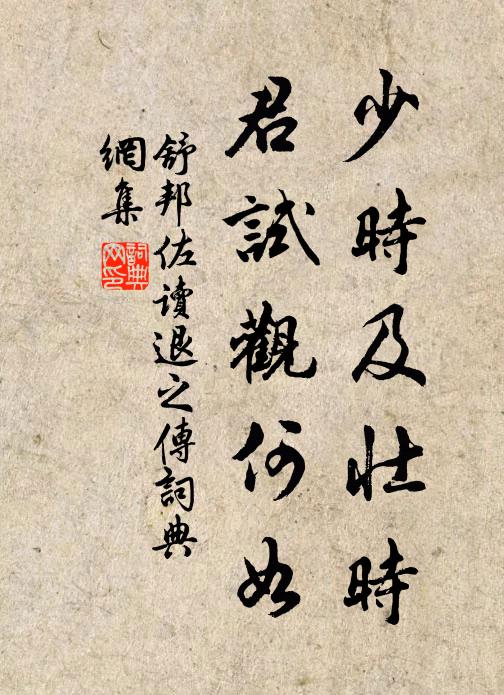 少時及壯時
君試觀何如
舒邦佐讀退之傳詞典
網集
詞典
网印